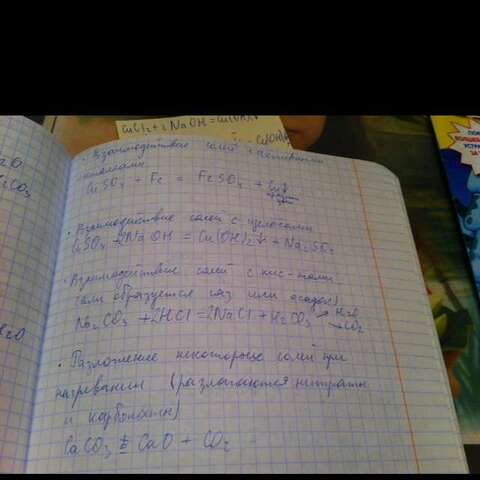 CuCl2 + 2NaOH = Cu(OH)2
• Взаимодействие солей с активными
металлами
CuSO4 + Fe = FeSO4 + Cu↓
• Взаимодействие солей с щелочами
CuSO4 + 2NaOH = Cu(OH)2↓ + Na2SO4
Взаимодействие солей с кис-тами
(если образуется газ или осадок)
Na2CO3 + 2HCl = 2NaCl + H2CO3 → H2O
→ CO2
• Разложение некоторых солей при
нагревании (разлагаются нитраты
и карбонаты)
CaCO3 t= CaO + CO2